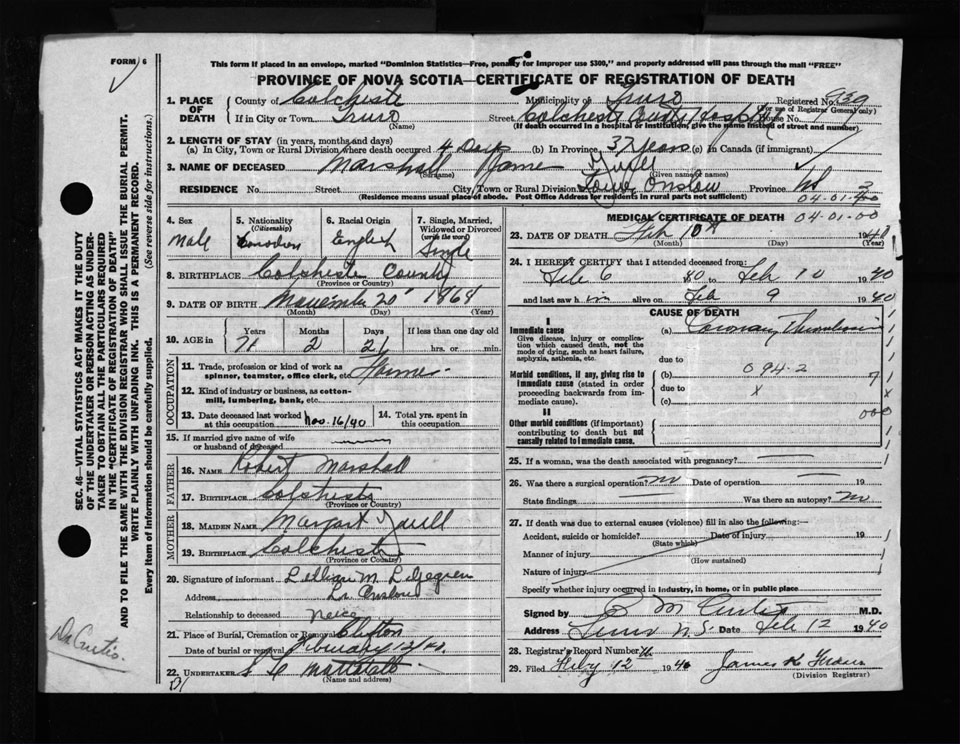 FORM 6
This form if placed in an envelope, marked "Dominion Statistics—Free, penalty for improper use $300," and properly addressed will pass through the mail "FREE"
PROVINCE OF NOVA SCOTIA—CERTIFICATE OF REGISTRATION OF DEATH
1. PLACE OF DEATH County of Colchester Municipality of Truro Registered No. 939
(For use of Registrar General only)
If in City or Town Truro Street Colchester County Hospital House No.
(Name) (If death occurred in a hospital or institution, give the name instead of street and number)
2. LENGTH OF STAY (in years, months and days)
(a) In City, Town or Rural Division where death occurred 4 days (b) In Province 37 years (c) In Canada (if immigrant)
3. NAME OF DECEASED Marshall
(Surname) (Given name or names)
RESIDENCE No. Street City, Town or Rural Division Lower Onslow Province NS
(Residence means usual place of abode. Post Office Address for residents in rural parts not sufficient)
04-01-00
04-01-00
4. Sex Male
5. Nationality (Citizenship) Canadian
6. Racial Origin English
7. Single, Married, Widowed or Divorced (write the word) Single
8. BIRTHPLACE Colchester County
(Province or Country)
9. DATE OF BIRTH November 20 1868
(Month) (Day) (Year)
10. AGE in Years Months Days If less than one day old
71 2 21 hrs. or min.
OCCUPATION
11. Trade, profession or kind of work as spinner, teamster, office clerk, etc. Farmer
12. Kind of industry or business, as cotton-mill, lumbering, bank, etc.
13. Date deceased last worked at this occupation Nov. 16/40
14. Total yrs. spent in this occupation
15. If married give name of wife or husband of deceased
FATHER
16. NAME Robert Marshall
17. BIRTHPLACE Colchester
(Province or Country)
MOTHER
18. MAIDEN NAME Margaret Yuill
19. BIRTHPLACE Colchester
(Province or Country)
20. Signature of informant Lillian M. Liljegren
Address Lr Onslow
Relationship to deceased Neice
21. Place of Burial, Cremation or Removal Clifton
Date of burial or removal February 12/40
22. UNDERTAKER S C Mattatall
(Name and address)
MEDICAL CERTIFICATE OF DEATH
23. DATE OF DEATH Feb 10th 1940
(Month) (Day) (Year)
24. I HEREBY CERTIFY that I attended deceased from:
Feb 6 40 to Feb 10 1940
and last saw him alive on Feb 9 1940
CAUSE OF DEATH
I
Immediate cause (a) Coronary Thrombosis
Give disease, injury or complication which caused death, not the mode of dying, such as heart failure, asphyxia, asthenia, etc.
due to
Morbid conditions, if any, giving rise to immediate cause (stated in order proceeding backwards from immediate cause).
(b) 094-2
due to x
(c)
000
II
Other morbid conditions (if important) contributing to death but not causally related to immediate cause.
25. If a woman, was the death associated with pregnancy?
26. Was there a surgical operation? no Date of operation 19
State findings Was there an autopsy? no
27. If death was due to external causes (violence) fill in also the following:—
Accident, suicide or homicide? Date of injury 19
(State which)
Manner of injury
(How sustained)
Nature of injury
Specify whether injury occurred in industry, in home, or in public place
Signed by M Curtis M.D.
Address Truro N.S. Date Feb 12 1940
28. Registrar's Record Number
29. Filed Feby 12 1940 James K
(Division Registrar)
SEC. 46—VITAL STATISTICS ACT MAKES IT THE DUTY OF THE UNDERTAKER OR PERSON ACTING AS UNDERTAKER TO OBTAIN ALL THE PARTICULARS REQUIRED IN THE "CERTIFICATE OF REGISTRATION OF DEATH" AND TO FILE THE SAME WITH THE DIVISION REGISTRAR WHO SHALL ISSUE THE BURIAL PERMIT.
WRITE PLAINLY WITH UNFADING INK. THIS IS A PERMANENT RECORD.
Every item of Information should be carefully supplied. (See reverse side for instructions.)
Dr Curtis.